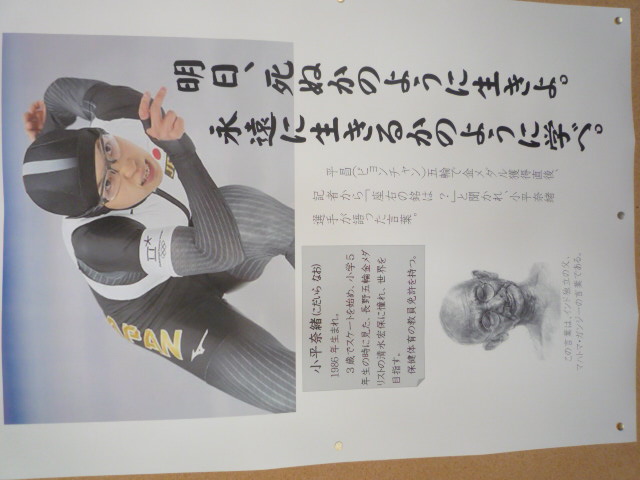 明日、死ぬかのように生きよ。
永遠に生きるかのように学べ。
平昌(ピョンチャン)五輪で金メダル獲得直後、
記者から「座右の銘は?」と聞かれ、小平奈緒
選手が語った言葉。
小平奈緒(こだいら なお)
1986年生まれ。
3歳でスケートを始め、小学5
年生の時に見た、長野五輪金メダ
リストの清水宏保に憧れ、世界を
目指す。
保健体育の教員免許を持つ。
この言葉は、インド独立の父、
マハトマ・ガンジーの言葉である。